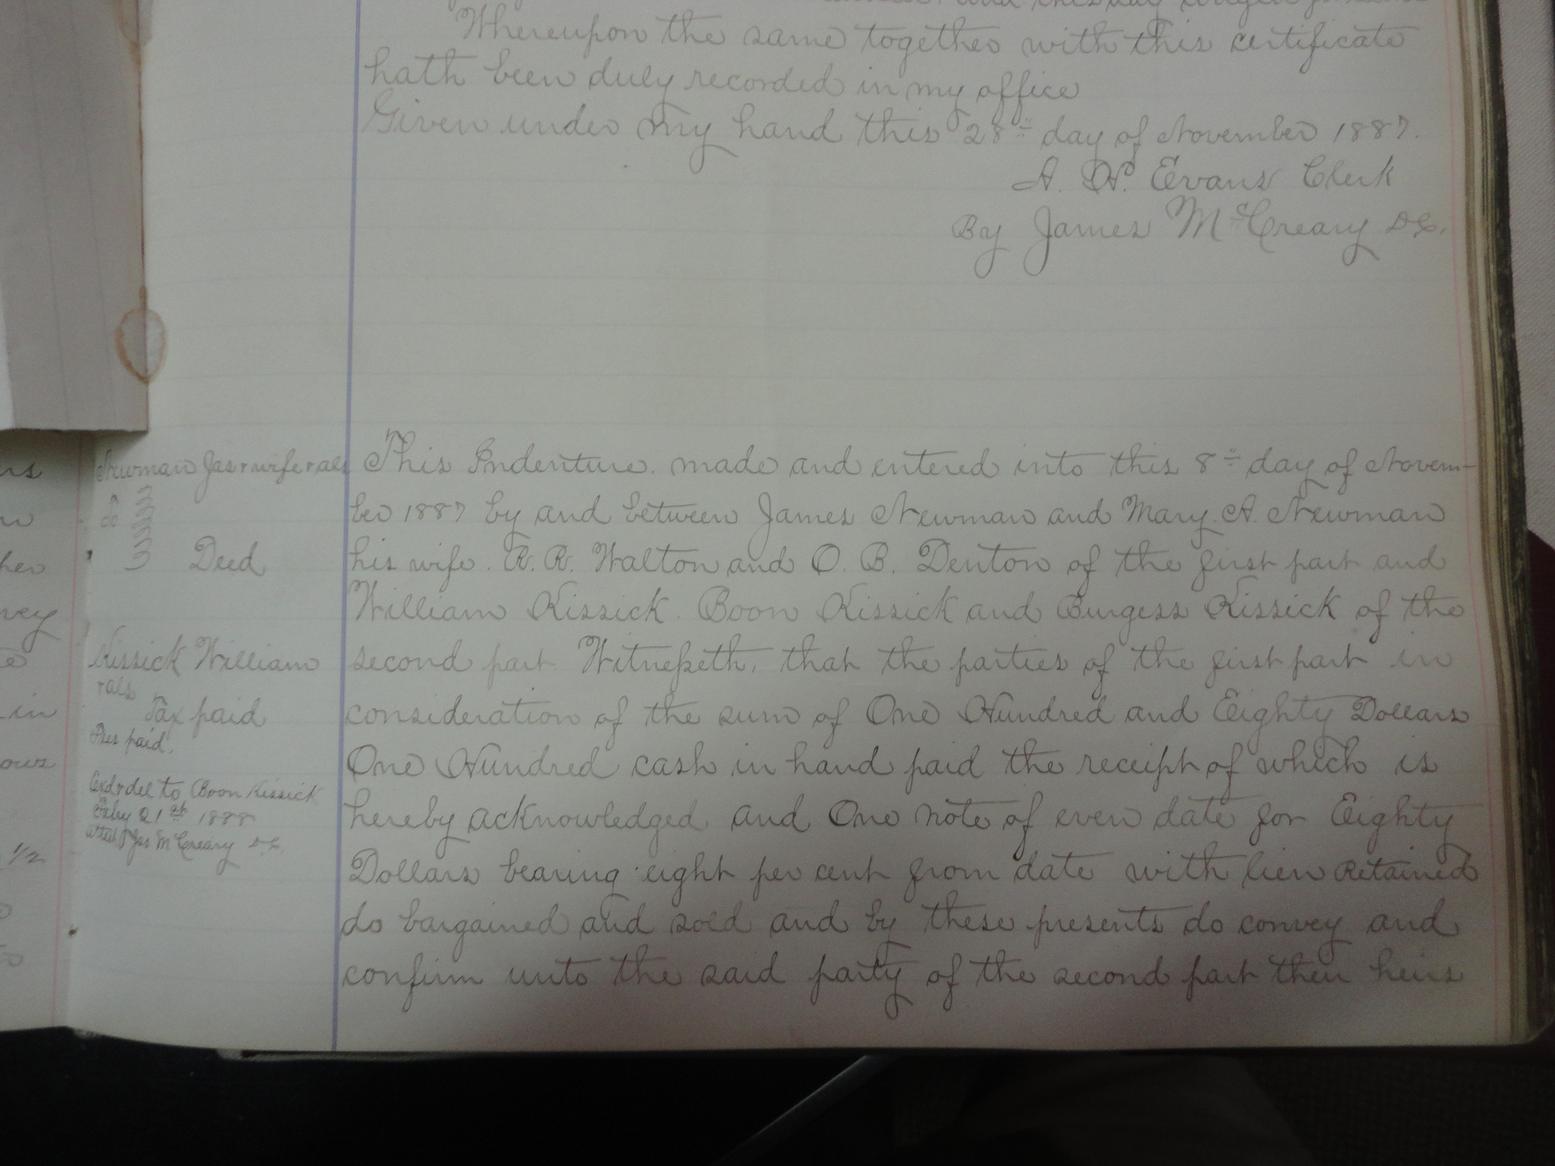 Whereupon the same together with this certificate
hath been duly recorded in my office
Given under my hand this 28th day of November 1887.
A. W. Evans Clerk
By James McCreary D.C.
Newman Jas & wife & als
To
Deed
Kissick William
& als
Tax paid
Fees paid.
Exd & del to Boon Kissick
Feby 21st 1888
Attest Jas McCreary D.C.
This Indenture. made and entered into this 8th day of Novem-
ber 1887 by and between James Newman and Mary A. Newman
his wife. R. R. Walton and O. B. Denton of the first part and
William Kissick. Boon Kissick and Burgess Kissick of the
second part Witnesseth, that the parties of the first part in
consideration of the sum of One Hundred and Eighty Dollars
One Hundred cash in hand paid the receipt of which is
hereby acknowledged and One note of even date for Eighty
Dollars bearing eight per cent from date with lien Retained
do bargained and sold and by these presents do convey and
confirm unto the said party of the second part their heirs